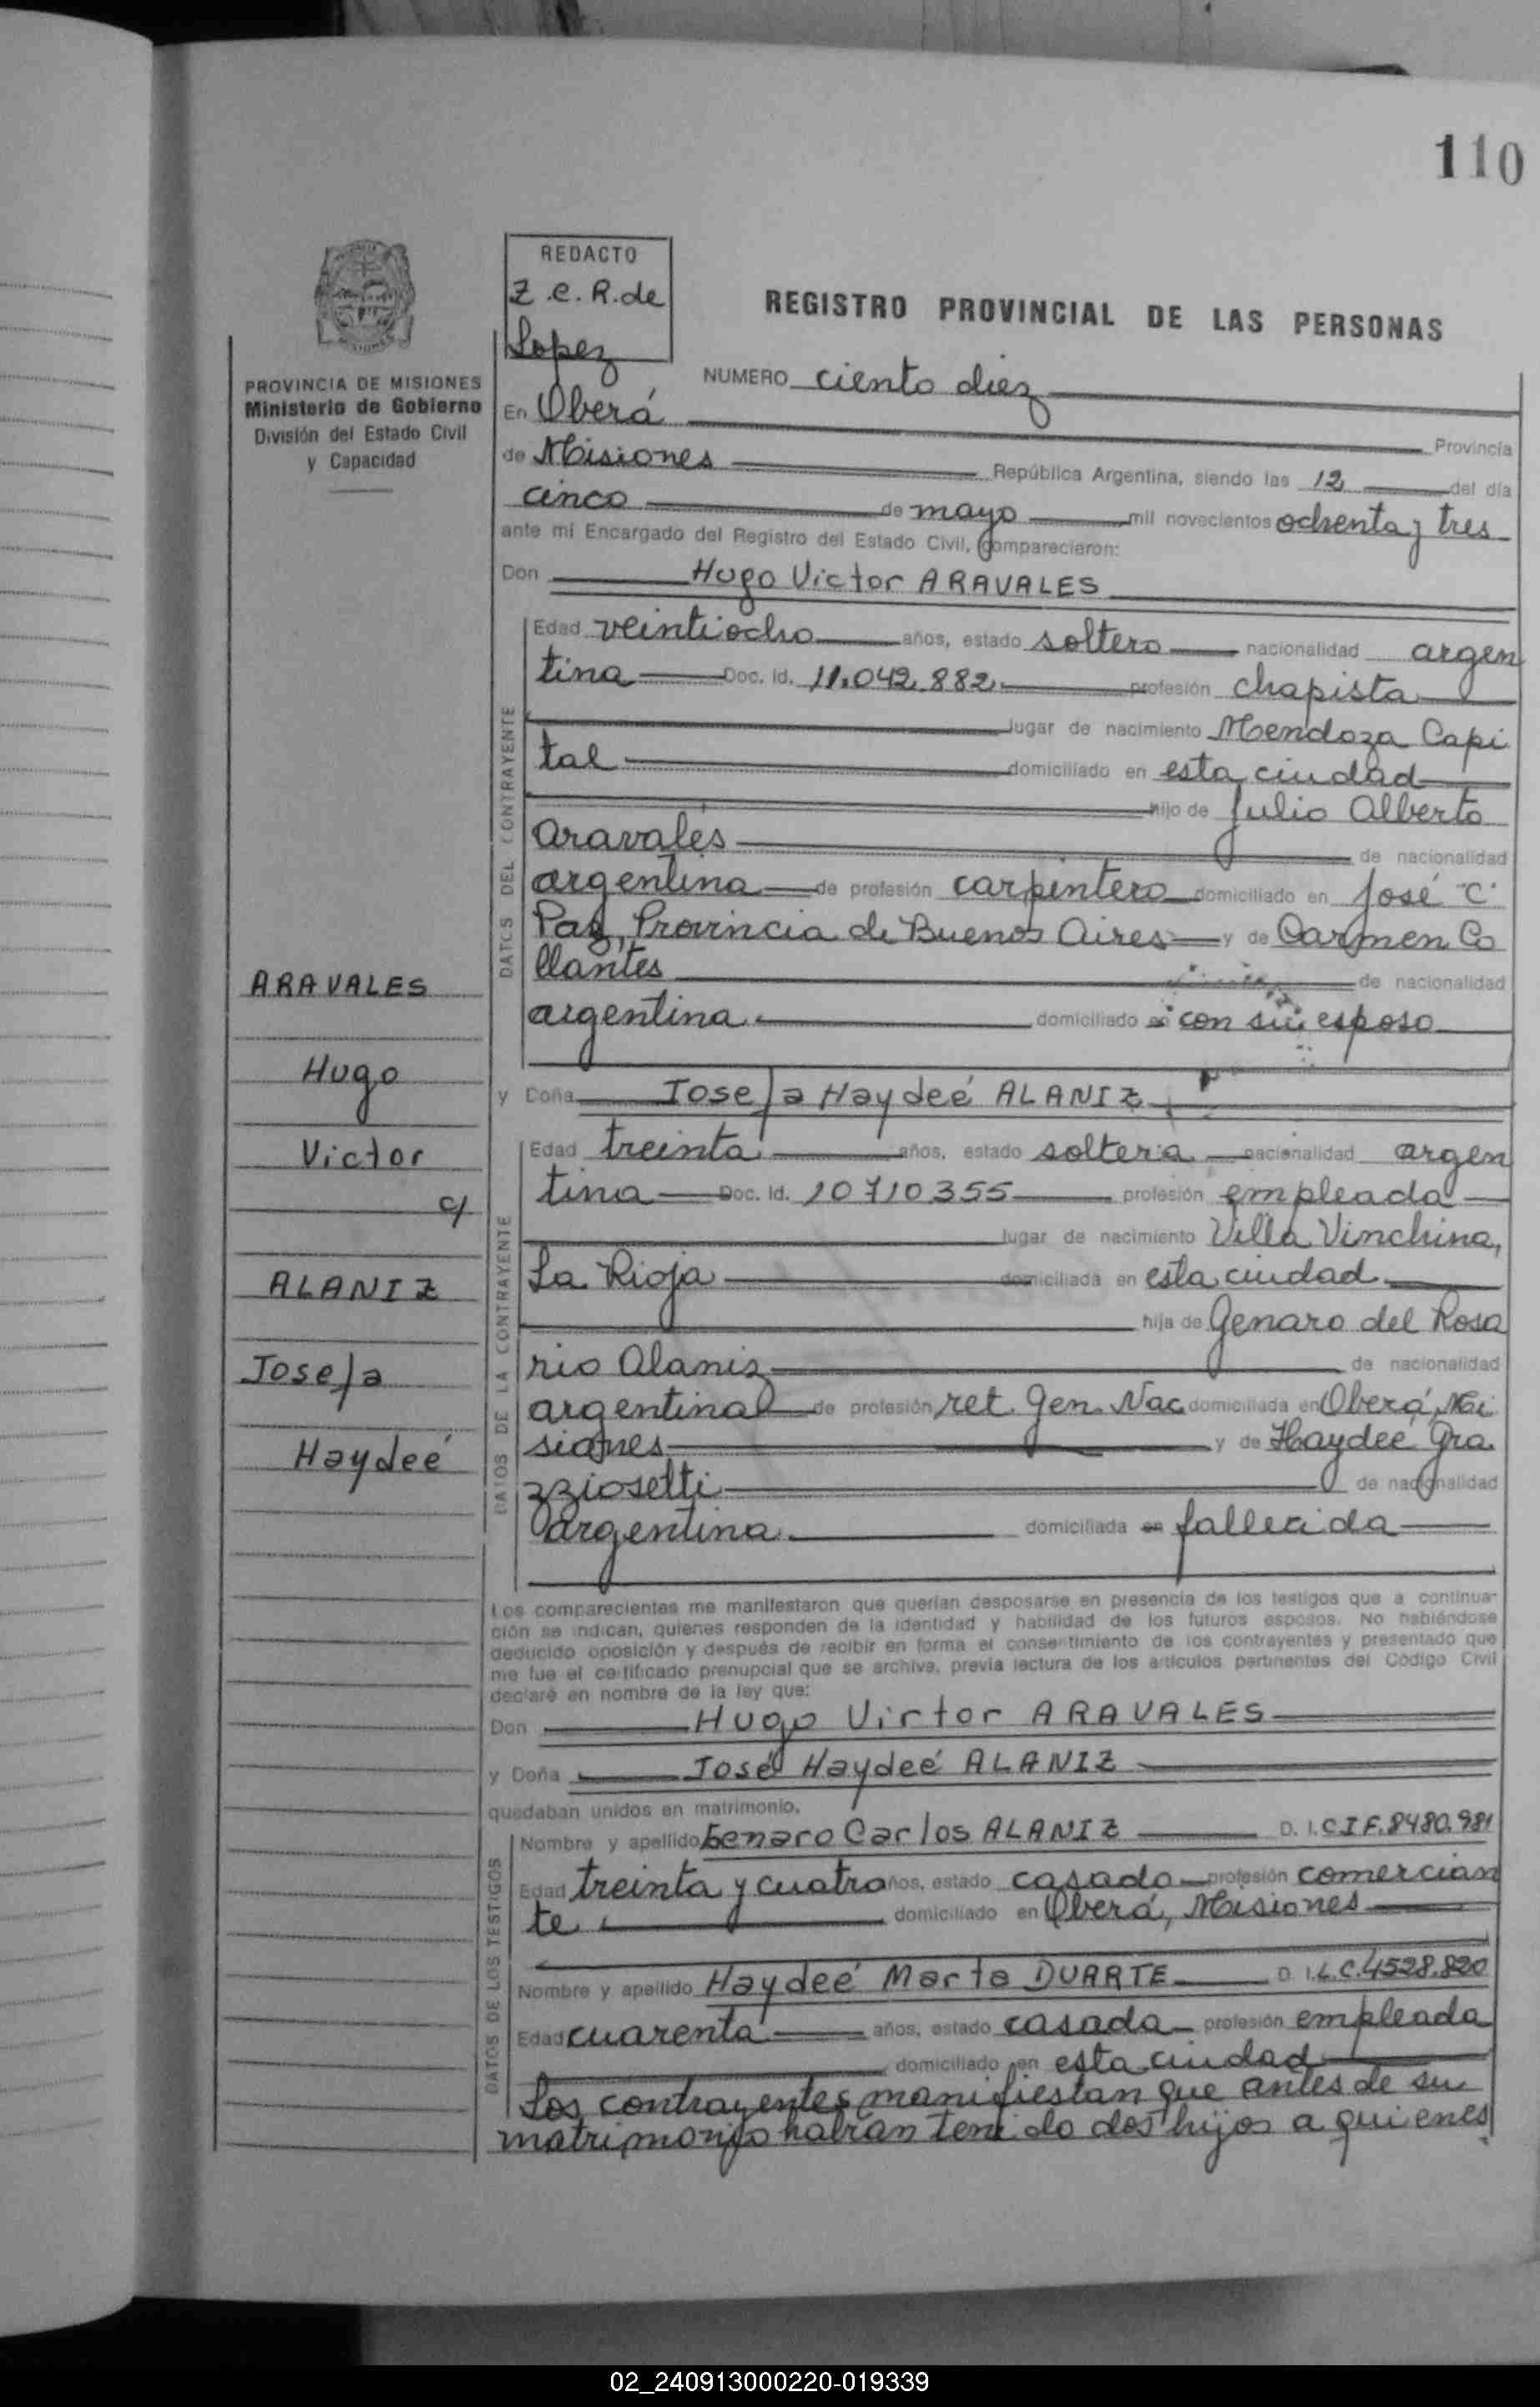 110
REDACTO
Z.C.R. de
Lopez
REGISTRO PROVINCIAL DE LAS PERSONAS
PROVINCIA DE MISIONES
Ministerio de Gobierno
División del Estado Civil
y Capacidad
NUMERO ciento diez
En Oberá Provincia
de Misiones República Argentina, siendo las 12 del día
cinco de mayo mil novecientos ochenta y tres
ante mí Encargado del Registro del Estado Civil, comparecieron:
Don Hugo Victor ARAVALES
DATOS DEL CONTRAYENTE
Edad veintiocho años, estado soltero nacionalidad argen
tina Doc. Id. 11.042.882 profesión chapista
lugar de nacimiento Mendoza Capi
tal domiciliado en esta ciudad
hijo de Julio Alberto
Aravales de nacionalidad
argentina de profesión carpintero domiciliado en José C.
Paz, Provincia de Buenos Aires y de Carmen Co
llantes de nacionalidad
argentina domiciliado en con su esposo
y Doña Josefa Haydeé ALANIZ
DATOS DE LA CONTRAYENTE
Edad treinta años, estado soltera nacionalidad argen
tina Doc. Id. 10710355 profesión empleada
lugar de nacimiento Villa Vinchina,
La Rioja domiciliada en esta ciudad
hija de Genaro del Rosa
rio Alaniz de nacionalidad
argentina de profesión ret. Gen. Nac. domiciliada en Oberá, Mi
siones y de Haydeé Gra
zziosetti de nacionalidad
argentina domiciliada en fallecida
Los comparecientes me manifestaron que querían desposarse en presencia de los testigos que a continua-
ción se indican, quienes responden de la identidad y habilidad de los futuros esposos. No habiéndose
deducido oposición y después de recibir en forma el consentimiento de los contrayentes y presentado que
me fue el certificado prenupcial que se archiva, previa lectura de los artículos pertinentes del Código Civil
declaré en nombre de la ley que:
Don Hugo Virtor ARAVALES
y Doña José Haydeé ALANIZ
quedaban unidos en matrimonio.
DATOS DE LOS TESTIGOS
Nombre y apellido Genaro Carlos ALANIZ D. I. C.I F. 8480.981
Edad treinta y cuatro años, estado casado profesión comercian
te domiciliado en Oberá, Misiones
Nombre y apellido Haydeé Marta DUARTE D. I. L.C. 4528.820
Edad cuarenta años, estado casada profesión empleada
domiciliado en esta ciudad
Los contrayentes manifiestan que antes de su
matrimonio habían tenido dos hijos a quienes
ARAVALES
Hugo
Victor
c/
ALANIZ
Josefa
Haydeé
02_240913000220-019339